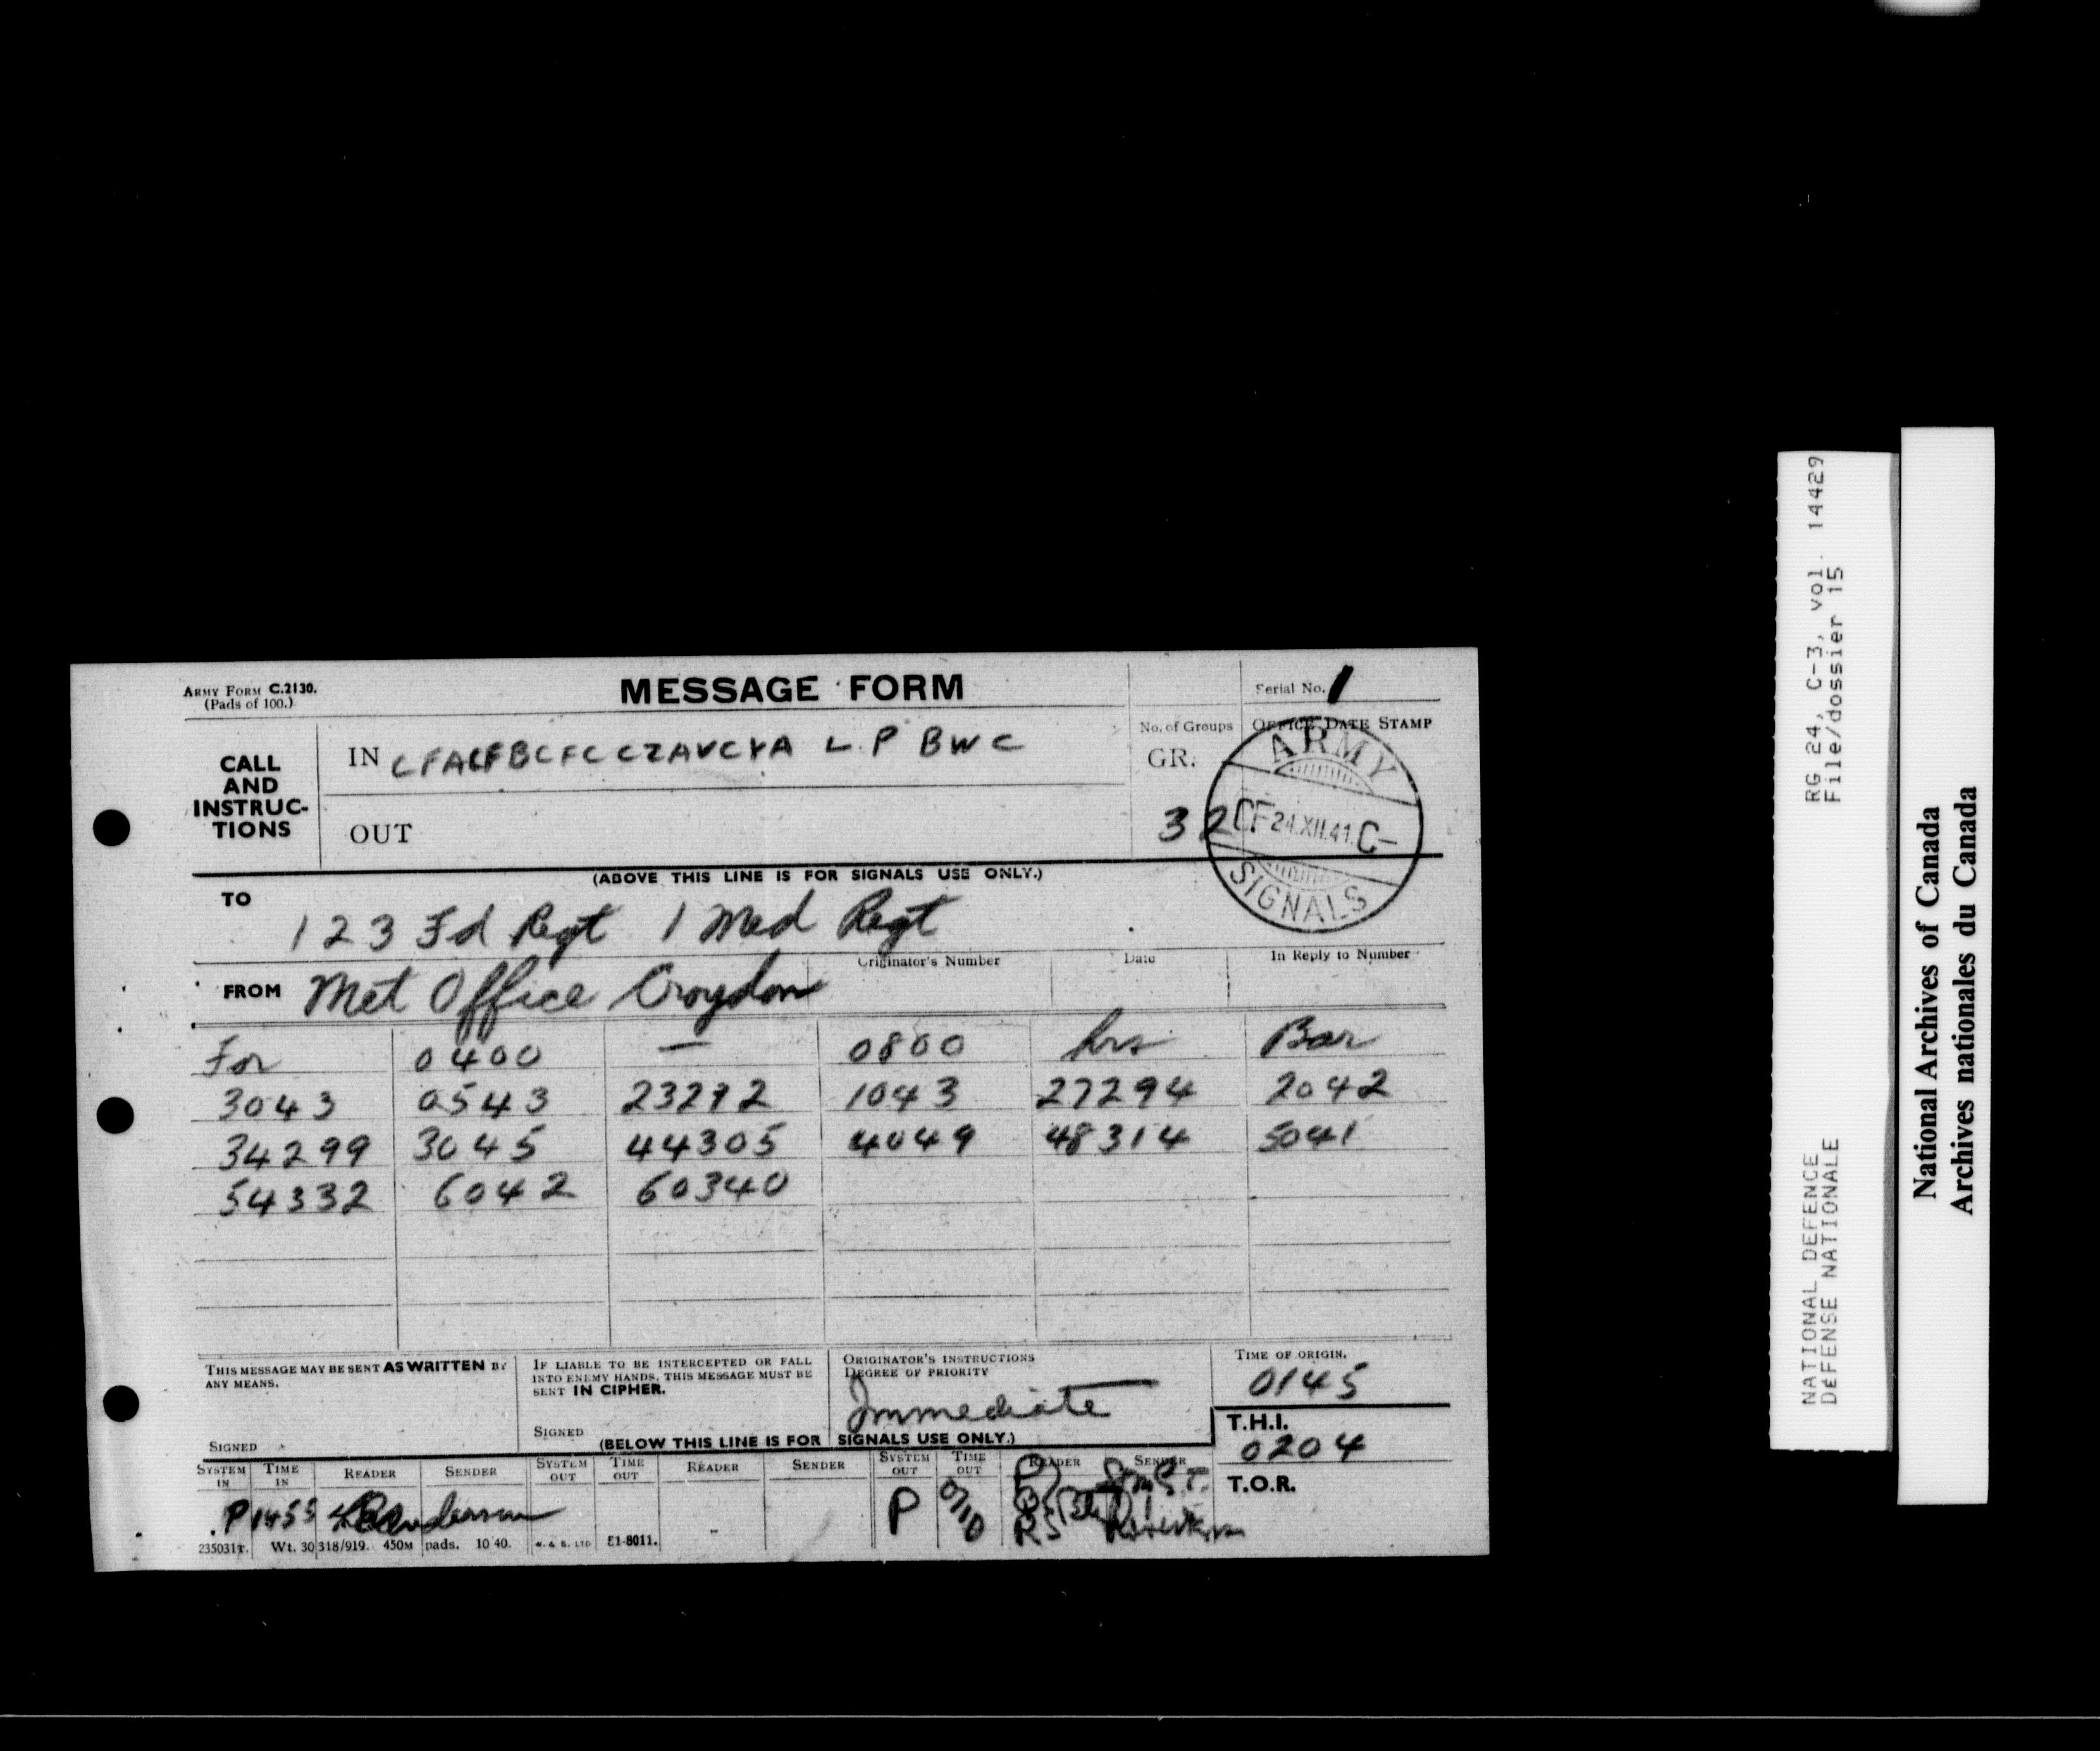 ARMY FORM C.2130.
(Pads of 100.)
MESSAGE FORM
Serial No. 1
CALL AND INSTRUC-TIONS
IN CFACFBCFCCZAVCYA L P BWC
OUT
No. of Groups
GR.
32
OFFICE DATE STAMP
ARMY
CF 24.XII.41 C-
SIGNALS
(ABOVE THIS LINE IS FOR SIGNALS USE ONLY.)
TO
1 2 3 Fd Regt 1 Med Regt
FROM Met Office Croydon
Originator's Number
Date
In Reply to Number
For 0400 — 0800 hrs Bar
3043 0543 23292 1043 27294 2042
34299 3045 44305 4049 48314 5041
54332 6042 60340
THIS MESSAGE MAY BE SENT AS WRITTEN BY
ANY MEANS.
SIGNED
IF LIABLE TO BE INTERCEPTED OR FALL
INTO ENEMY HANDS, THIS MESSAGE MUST BE
SENT IN CIPHER.
SIGNED
ORIGINATOR'S INSTRUCTIONS
DEGREE OF PRIORITY
Immediate
TIME OF ORIGIN.
0145
T.H.I.
0204
T.O.R.
(BELOW THIS LINE IS FOR SIGNALS USE ONLY.)
SYSTEM IN TIME IN READER SENDER SYSTEM OUT TIME OUT READER SENDER SYSTEM OUT TIME OUT READER SENDER
P P
235031T. Wt. 30318/919. 450M pads. 10 40. W. & S. LTD 51-8011.
RG 24, C-3, vol. 14429
File/dossier 15
NATIONAL DEFENCE
DÉFENSE NATIONALE
National Archives of Canada
Archives nationales du Canada